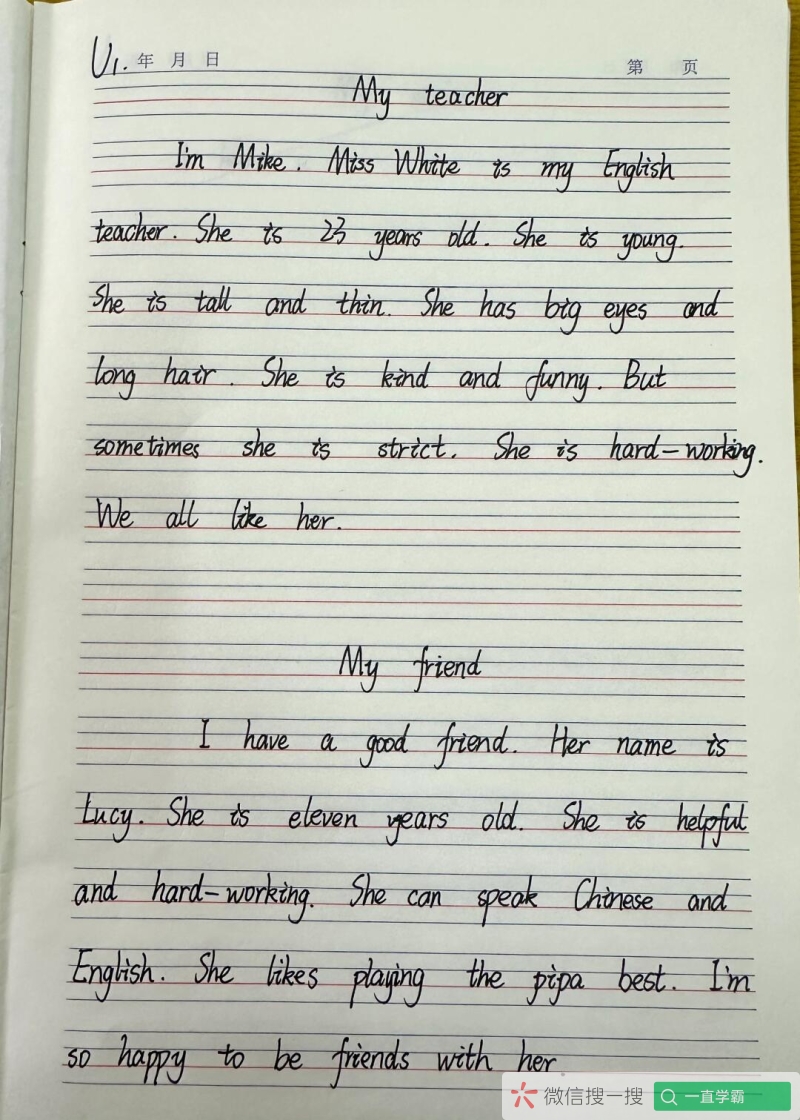 U1. 年 月 日 第 页
My teacher
I'm Mike. Miss White is my English
teacher. She is 23 years old. She is young.
She is tall and thin. She has big eyes and
long hair. She is kind and funny. But
sometimes she is strict. She is hard-working.
We all like her.
My friend
I have a good friend. Her name is
Lucy. She is eleven years old. She is helpful
and hard-working. She can speak Chinese and
English. She likes playing the pipa best. I'm
so happy to be friends with her.
微信搜一搜 一直学霸